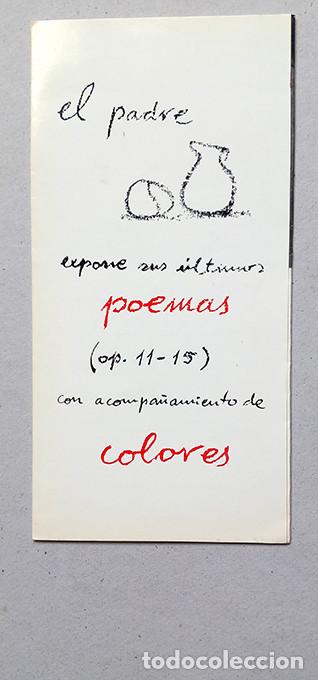 el padre
expone sus últimos
poemas
(op. 11-15)
con acompañamiento de
colores
todocoleccion